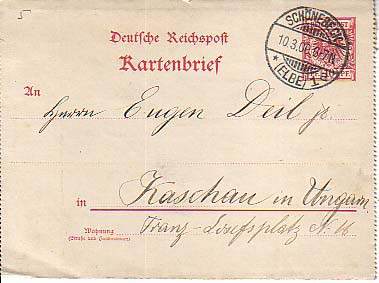 5
Deutsche Reichspost
Kartenbrief
SCHÖNEBECK
10.3.00
(ELBE) 1
An
Herrn Eugen Deil jr.
in Kaschau in Ungarn
Wohnung
(Straße und Hausnummer)
Franz-Josefsplatz N. 16